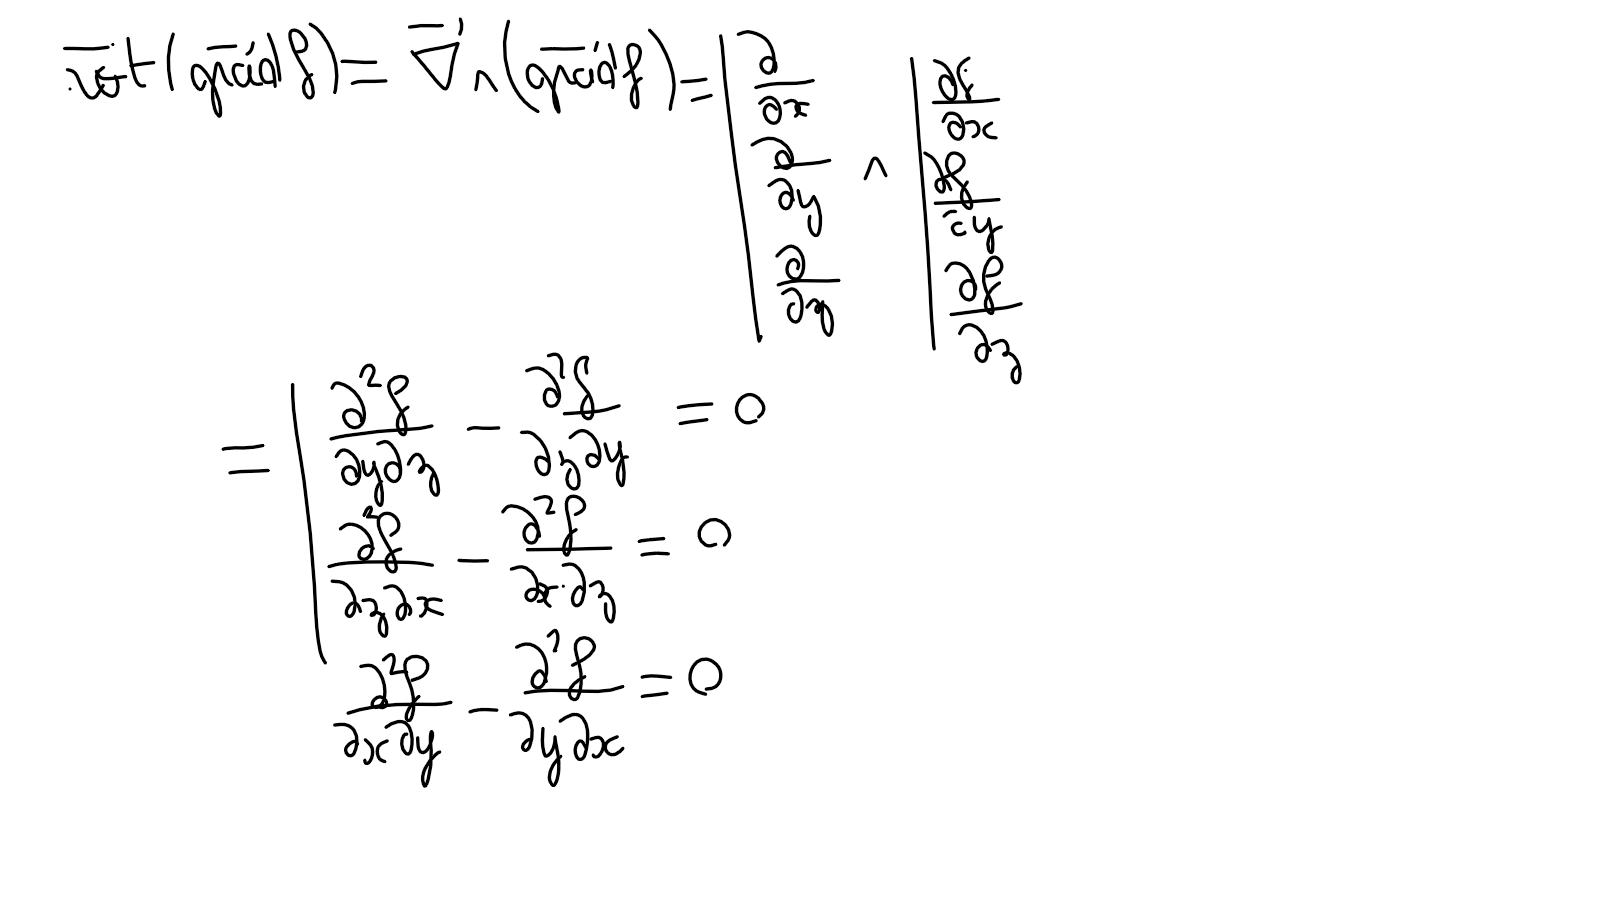 $\overrightarrow{rot}(\overrightarrow{grad} f) = \overrightarrow{\nabla} \wedge (\overrightarrow{grad} f) = \left| \begin{array}{l} \frac{\partial}{\partial x} \\ \frac{\partial}{\partial y} \\ \frac{\partial}{\partial z} \end{array} \right. \wedge \left| \begin{array}{l} \frac{\partial f}{\partial x} \\ \frac{\partial f}{\partial y} \\ \frac{\partial f}{\partial z} \end{array} \right.$
$= \left| \frac{\partial^2 f}{\partial y \partial z} - \frac{\partial^2 f}{\partial z \partial y} = 0 \right.$
$\frac{\partial^2 f}{\partial z \partial x} - \frac{\partial^2 f}{\partial x \partial z} = 0$
$\frac{\partial^2 f}{\partial x \partial y} - \frac{\partial^2 f}{\partial y \partial x} = 0$